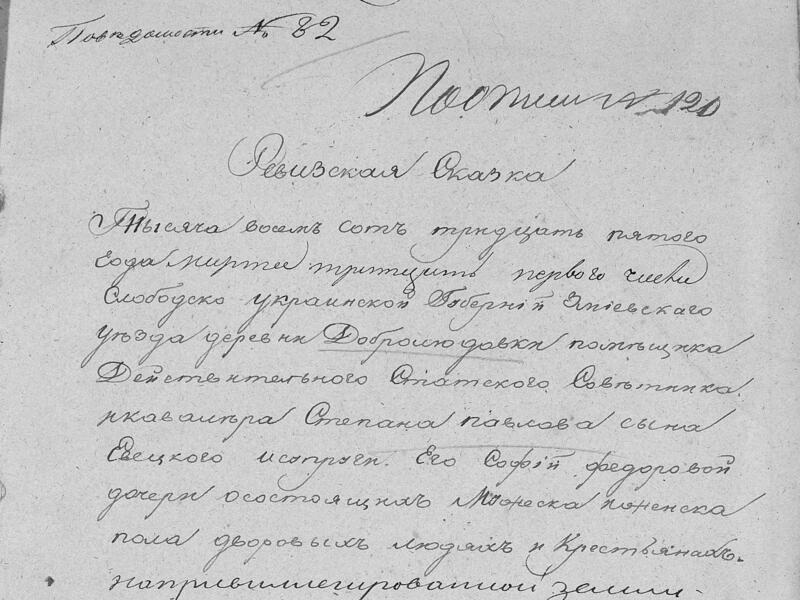 Поведомости № 82
Поописи № 120
Ревизская Сказка
Тысяча восемъ сотъ тридцать пятого
года Марта тритцать первого числа
Слободско украинской Губерній Зміевскаго
уѣзда деревни Добролюдовки помѣщика
Действительного Статского Совѣтника
икавалѣра Степана павлова сына
исупруги. Его Софій федоровой
дочери осостоящихъ Мужеска иженска
пола дворовыхъ людяхъ и Крестьянахъ.
напривиллегированной земли